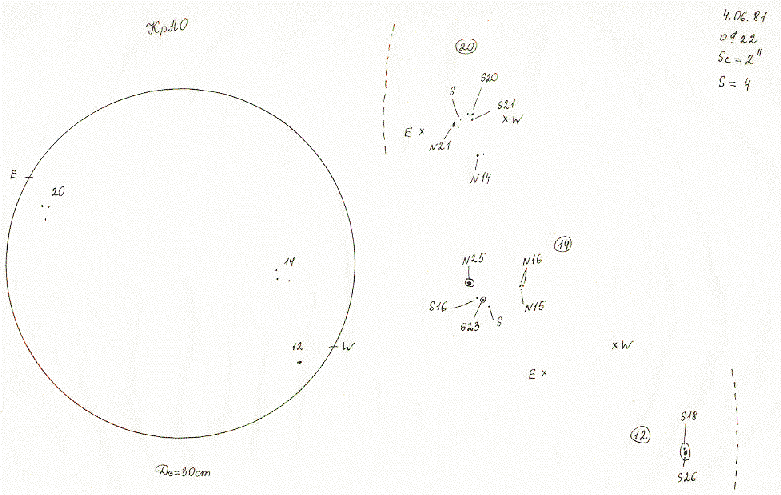 КрАО
4.06.81
Sc = 2"
S = 4
20
S
S20
S21
E
W
N21
N14
E
20
14
12
W
14
N25
N16
S16
S23
S
N15
W
E
12
S18
S26